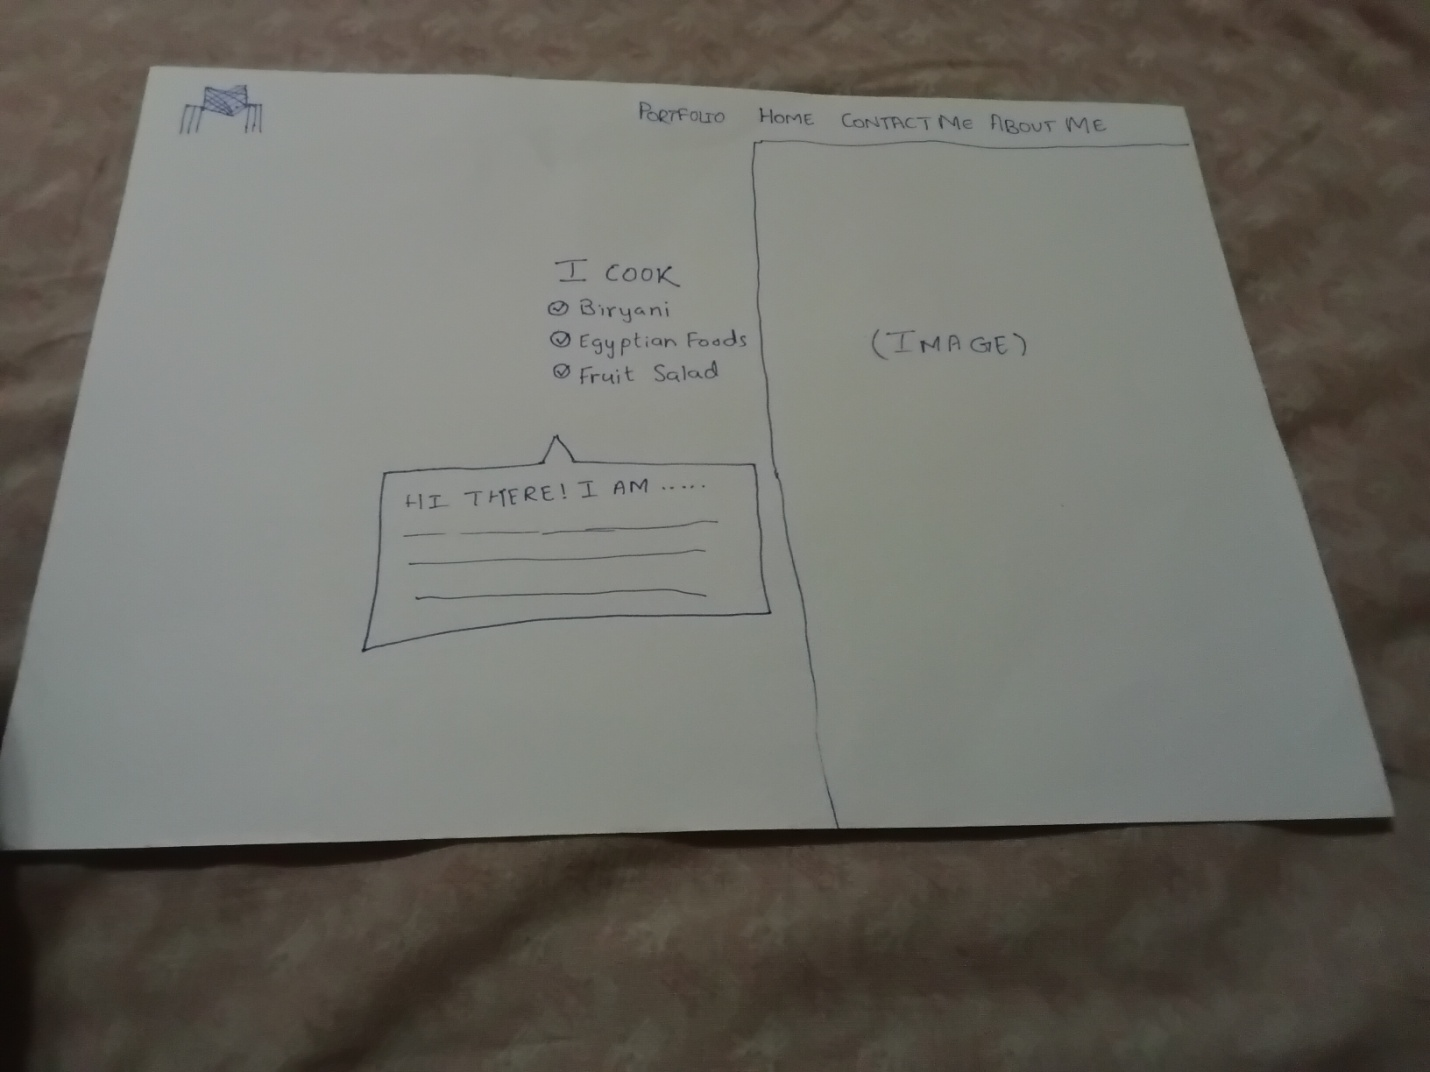 PORTFOLIO HOME CONTACT ME ABOUT ME
I COOK
Biryani
Egyptian Foods
Fruit Salad
(IMAGE)
HI THERE! I AM .....